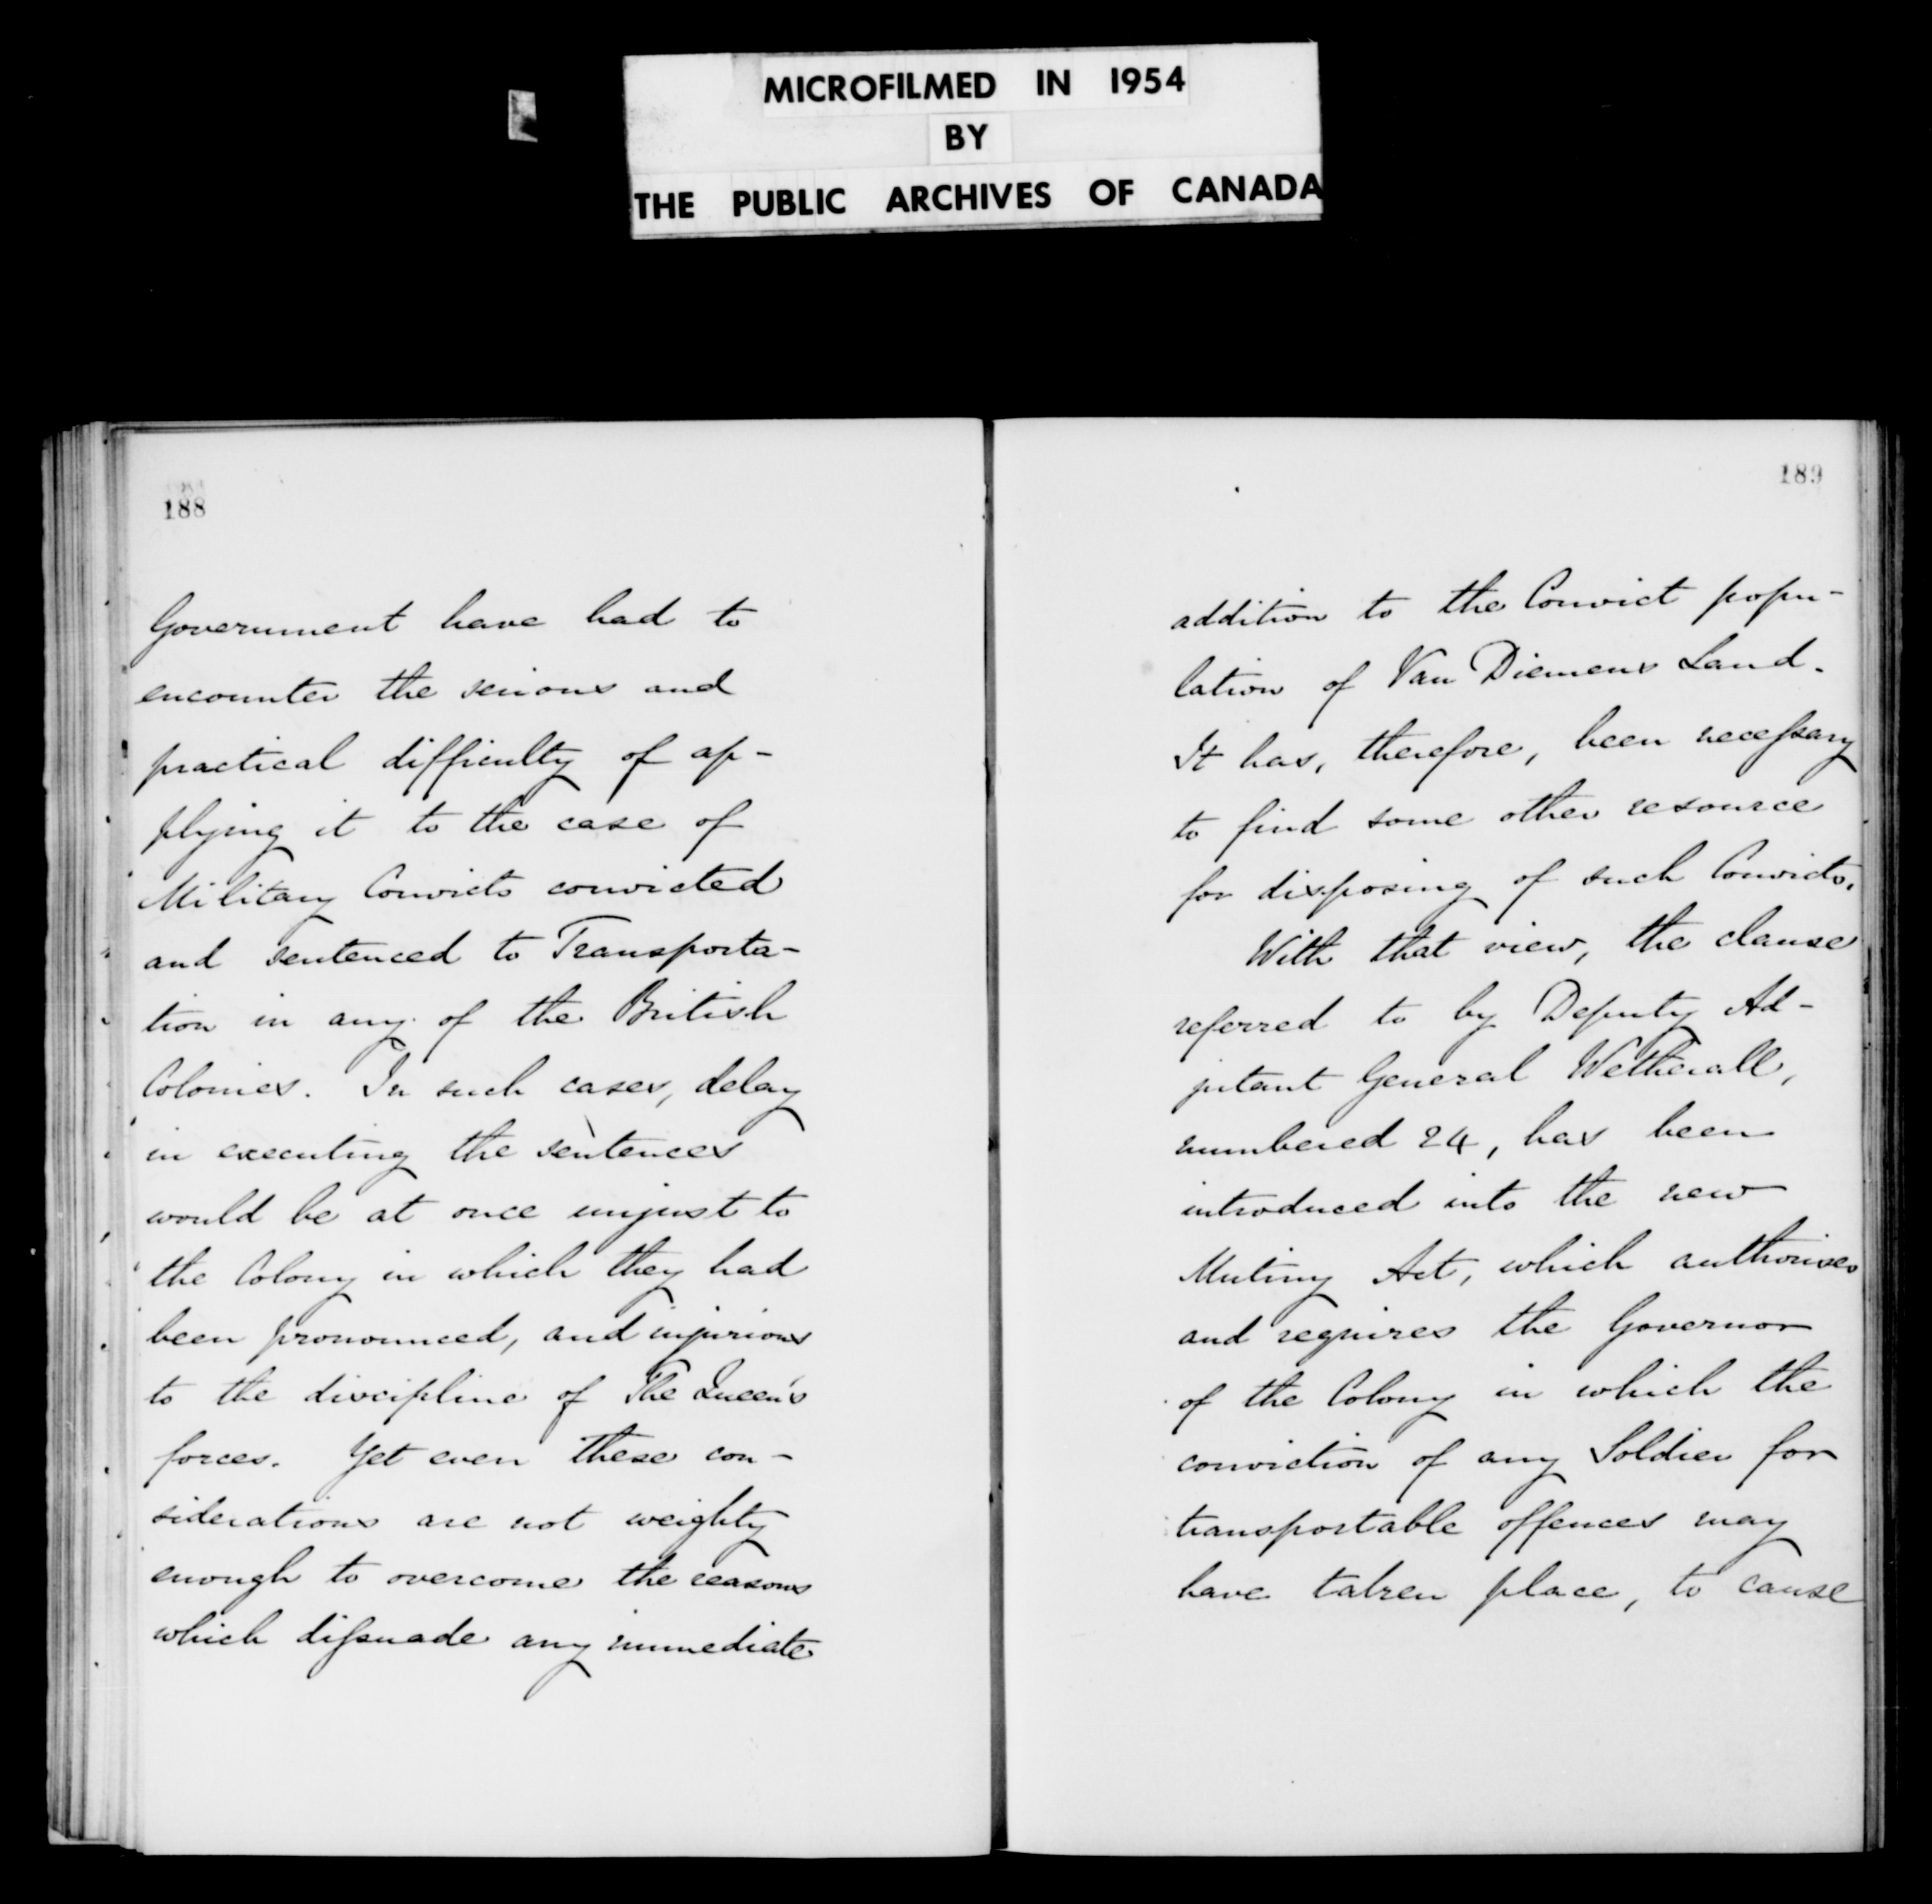 MICROFILMED IN 1954
BY
THE PUBLIC ARCHIVES OF CANADA
188
Government have had to
encounter the serious and
practical difficulty of ap-
plying it to the case of
Military Convicts convicted
and sentenced to Transporta-
tion in any of the British
Colonies. In such cases, delay
in executing the sentences
would be at once unjust to
the Colony in which they had
been pronounced, and injurious
to the discipline of The Queen's
forces. Yet even these con-
siderations are not weighty
enough to overcome the reasons
which dissuade any immediate
189
addition to the Convict popu-
lation of Van Diemens Land.
It has, therefore, been necessary
to find some other resource
for disposing of such Convicts.
With that view, the clause
referred to by Deputy Ad-
jutant General Wetherall,
numbered 24, has been
introduced into the new
Mutiny Act, which authorises
and requires the Governor
of the Colony in which the
conviction of any Soldier for
transportable offences may
have taken place, to cause